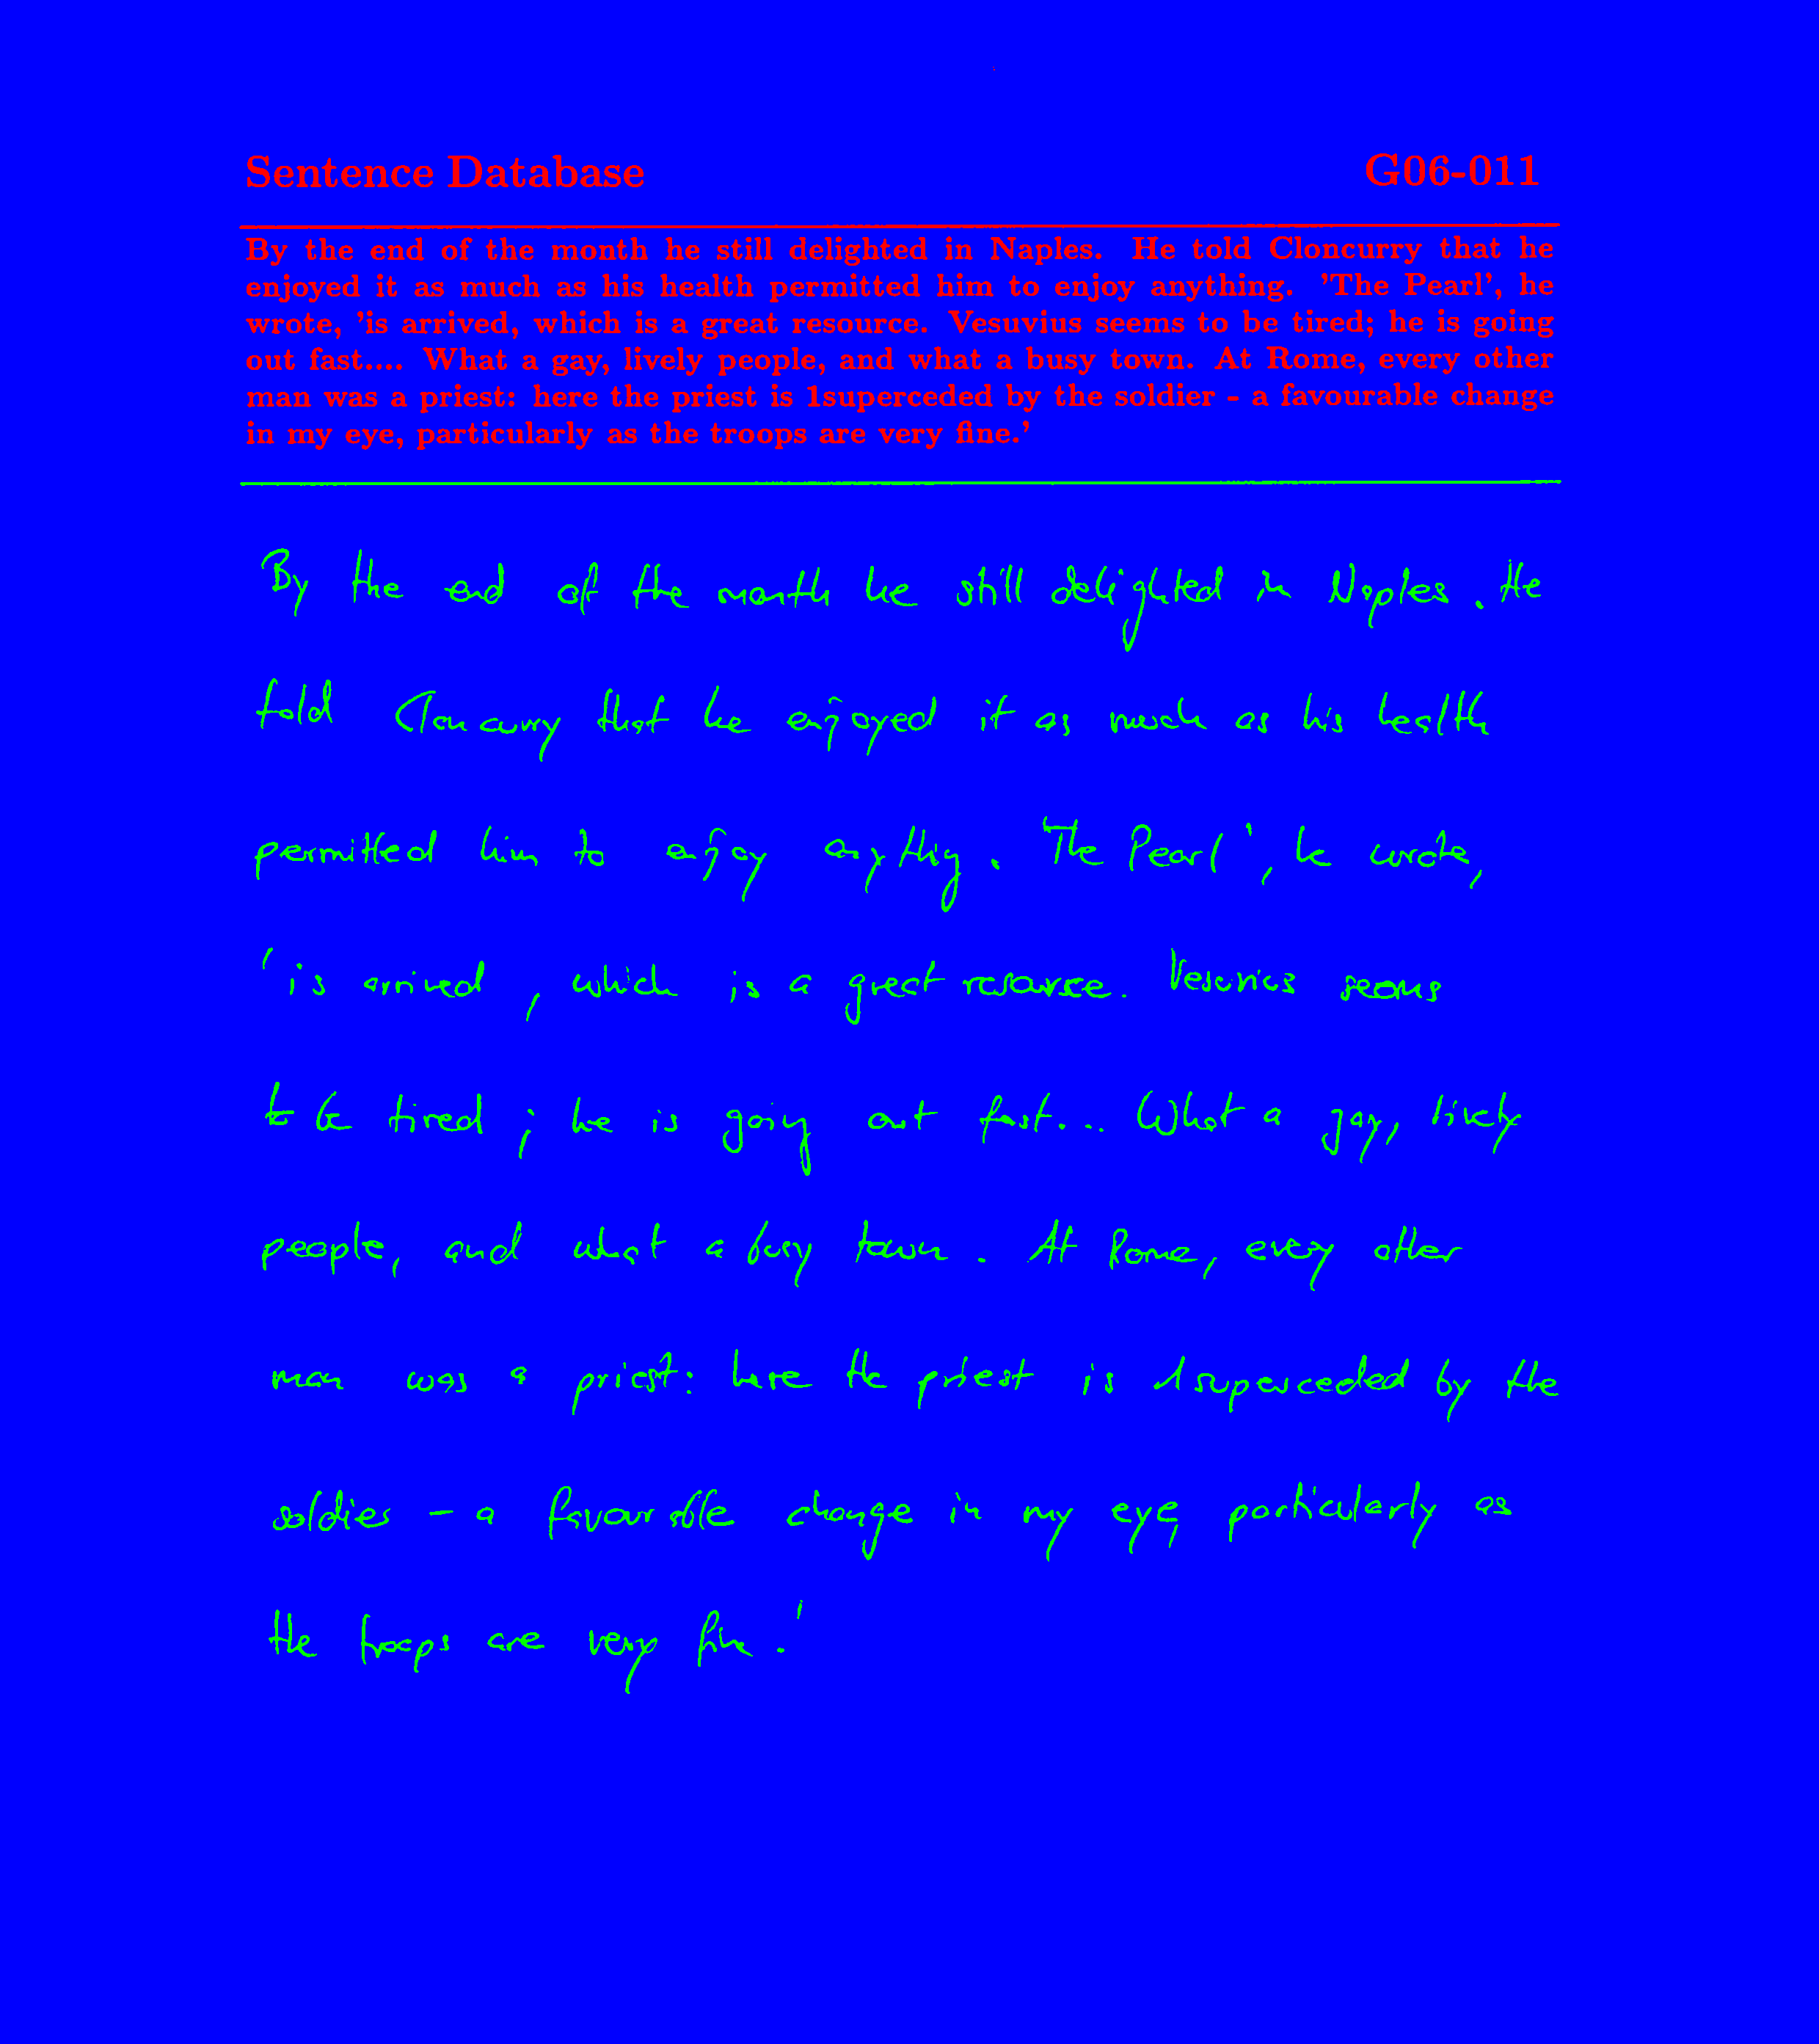 Sentence Database G06-011
By the end of the month he still delighted in Naples. He told Cloncurry that he
enjoyed it as much as his health permitted him to enjoy anything. 'The Pearl', he
wrote, 'is arrived, which is a great resource. Vesuvius seems to be tired; he is going
out fast.... What a gay, lively people, and what a busy town. At Rome, every other
man was a priest: here the priest is 1superceded by the soldier - a favourable change
in my eye, particularly as the troops are very fine.'
By the end of the month he still delighted in Naples. He
told Cloncurry that he enjoyed it as much as his health
permitted him to enjoy anything. 'The Pearl', he wrote,
'is arrived, which is a great resource. Vesuvius seems
to be tired; he is going out fast... What a gay, lively
people, and what a busy town. At Rome, every other
man was a priest: here the priest is 1superceded by the
soldier - a favourable change in my eye, particularly as
the troops are very fine.'